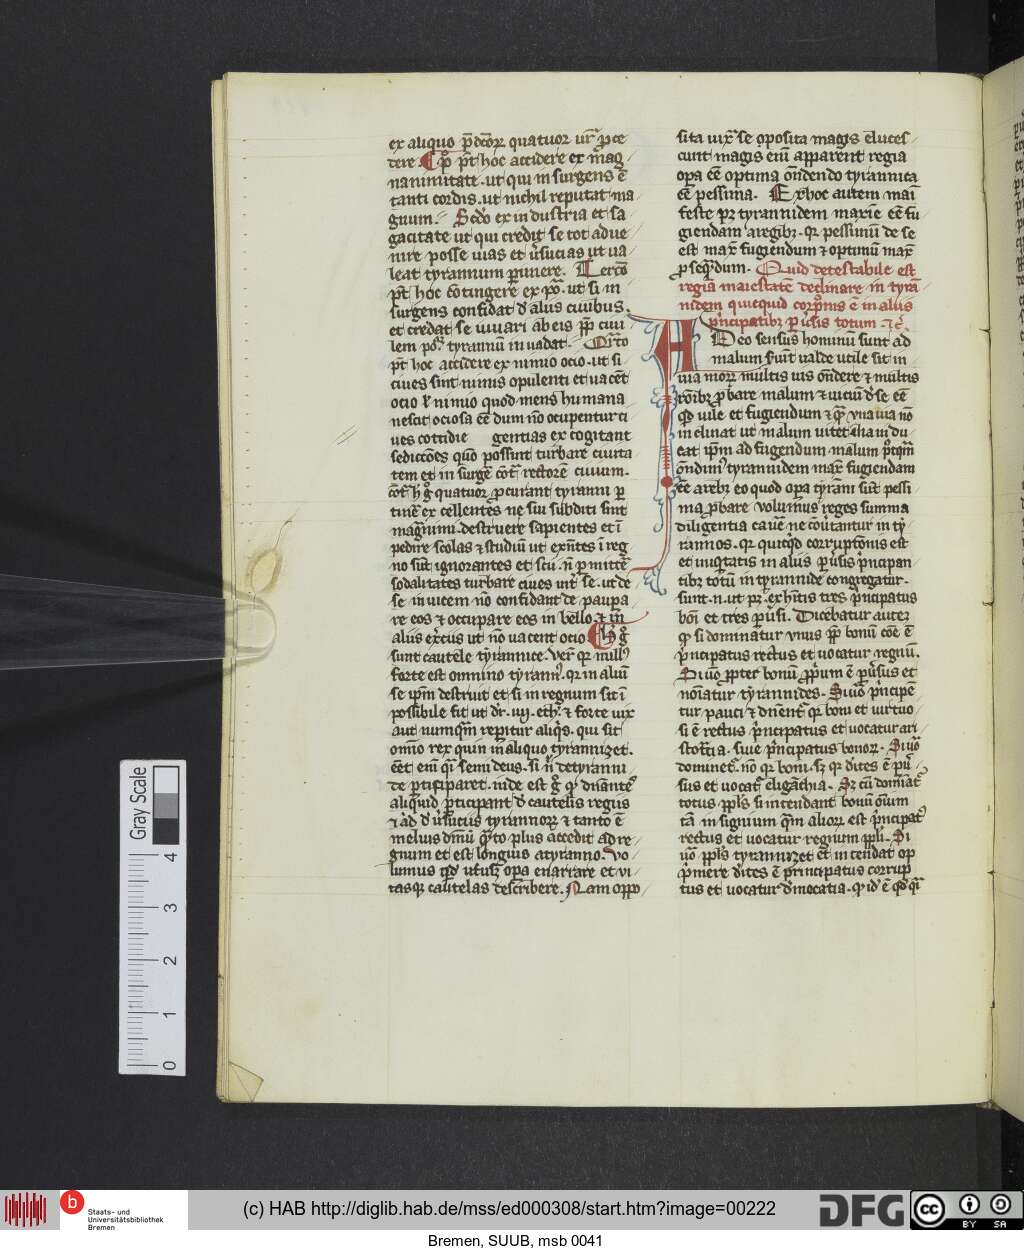 ex aliquo p̄dc̄oꝝ quatuor ur̄ ꝓce
dere. p̄t hoc accidere ex mag
nanimitate. ut qui insurgens ē
tanti cordis. ut nichil reputat ma
gnum. Scd̄o ex industria et sa
gacitate ut qui credit se tot adue
nire posse uias et u̾sucias ut ua
leat tyrannum ꝑimere. Tercō
p̄t hoc cōtingere ex ut si in
surgens confidat d̄ aliis ciuibus
et credat se iuuari ab eis ciui
lem tyrannū inuadat. Qr̄to
p̄t hoc accidere ex nimio ocio. ut si
ciues sint nimis opulenti et uacēt
ocio nimio quod mens humana
nescit ociosa eē dum nō occupentur ci
ues cottidie gentias excogitant
sedicc̄ōes possunt turbare ciuita
tem et insurgē cōt̄ rectorē ciuium.
cōt̄ h̄ g̊ quatuor ꝓcurant tyranni ꝑ
excellentes ne sui subditi sint
magnimi. destruere sapientes et ī
pedire scolas ⁊ studiū ut exn̄tes ī reg
no sūt ignorantes et n̄ ꝑmittē
sodalitates turbare ciues int̄ se. ut de
se inuicem nō confidant de paupa
re eos ⁊ occupare eos in bello ⁊ in
aliis ut nō uacent ocio
sunt cautele tyrannice. Ver̄ qꝛ null᷒
forte est omnino tyrann᷒. qꝛ in aliū
se ip̄m destruit et si in regnum sit ī
possibile fit ut dr̄. iiii. eth̄. ⁊ forte uix
aut numqm̄ reperitur aliqͥs. qui sit
omīo rex quin in aliquo tyrannizet.
eēt enī semideus. si n̄ de tyranni
de ꝑticiparet. inde est g̊
aliquid ꝑticipant d̄ cautelis regiis
⁊ d̄ u̾sucius tyrannoꝝ ⁊ tanto ē
melius plus accedit ad re
gnum et est longius a tyranno. Vo
lumus opera enarrare et ui
tasqꝫ cautelas describere. Nam oppo
sita iuxͣ se oposita magis elucēs
cunt magis eni apparent regia
oꝑa eē optima on̄dendo tyrannica
eē pessima. Ex hoc autem mai
feste pꝫ tyrannidem maxīe eē fu
giendam a regibꝫ. qꝛ pessimū de se
est max̄ fugiendum ⁊ optimū max̄
ꝓsequēdum. Quid detestabile est
regiā maiestatē declinare in tyrā
nidem quicquid corꝑonis ē in aliis
p̄ncipatibꝫ totum ⁊c̄.
ADeo sensus hominū sunt ad
malum ꝓni valde utile sit in
uia moꝝ multis uiis on̄dere ⁊ multis
rōibꝫ ꝓbare malum ⁊ uiciū d̄ se eē
qd̄ uile et fugiendum ⁊ una uia nō
inclinat ut malum uitet alia indu
cat ip̄m ad fugiendum malum
on̄dim᷒ tyrannidem max̄ fugiendam
eē a regibꝫ eo quod oꝑa tyrāni sūt pessi
ma ꝓbare volumus reges summa
diligentia cauē ne cōutantur in ty
rannos. qꝛ quicqͥd corruptōnis est
et iniqͥtatis in aliis ꝑu̾sis p̄ncipan
tibꝫ totū in tyrannide congregatur.
Sunt. n. ut pꝫ. ex hītis tres p̄ncipatus
boni et tres ꝑu̾si. Dicebatur autem
qꝫ si dominatur vnus ꝓp̄ bonū cōe ē
p̄ncipatus rectus et vocatur regnū.
Si uo ꝓpter bonū ꝓprium ē ꝑu̾sus et
noīatur tyrannides. Si uo p̄ncipē
tur pauci ⁊ qꝛ boni et uirtuo
si ē rectus p̄ncipatus et vocatur ari
stoc̄tia. siue p̄ncipatus bonoꝝ. Si uo
dominet̄. nō qꝛ boni. sꝫ qꝛ dites ē ꝑu̾
sus et uocat̄ eligarchia. Sꝫ cū domiat̄
totus ppl̄s si intendant bonū oīum
tā insignium qm̄ alioꝝ est p̄ncipat᷒
rectus et vocatur regnum ppl̄i. Si
uo ppl̄s tyrannizet eē intendat op
p̄mere dites ē principatus corrup
tus et uocatur d̄mocatia.
Gray Scale
4
3
2
1
0
b
Staats- und
Universitätsbibliothek
Bremen
(c) HAB http://diglib.hab.de/mss/ed000308/start.htm?image=00222
DFG
cc
BY SA
Bremen, SUUB, msb 0041